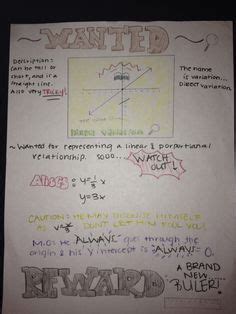 WANTED
Description:
Can be tall or
short, and is a
straight line.
Also very TRICKY!
The name
is variation...
Direct variation.
DIRECT VARIATION
~ Wanted for representing a linear & porportional
relationship. Sooo...
WATCH
OUT!
Alias:
y=1/3 x
y=3x
CAUTION: HE MAY DISGUISE HIMSELF
AS DONT LET HIM FOOL YOU!
M.O: He ALWAYS goes through the
origin & his y intercept is ALWAYS = 0.
REWARD
A BRAND
NEW
RULER!